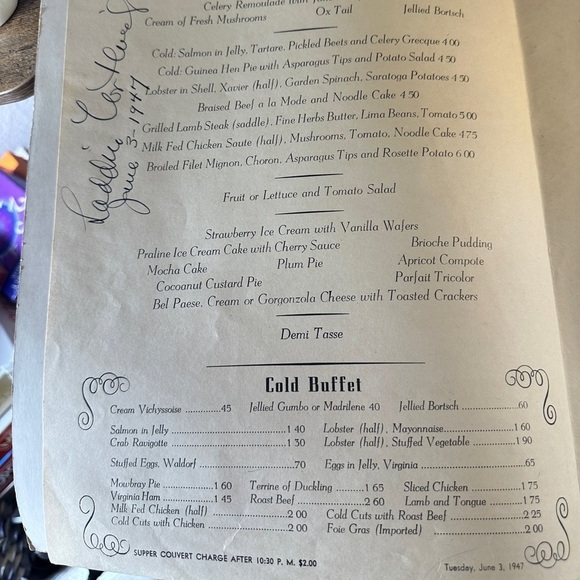 Celery Remoulade with
Cream of Fresh Mushrooms Ox Tail Jellied Bortsch
Cold: Salmon in Jelly, Tartare, Pickled Beets and Celery Grecque 4 00
Cold: Guinea Hen Pie with Asparagus Tips and Potato Salad 4 50
Lobster in Shell, Xavier (half), Garden Spinach, Saratoga Potatoes 4 50
Braised Beef a la Mode and Noodle Cake 4 50
Grilled Lamb Steak (saddle), Fine Herbs Butter, Lima Beans, Tomato 5 00
Milk Fed Chicken Saute (half), Mushrooms, Tomato, Noodle Cake 4 75
Broiled Filet Mignon, Choron, Asparagus Tips and Rosette Potato 6 00
June 3-1947
Fruit or Lettuce and Tomato Salad
Strawberry Ice Cream with Vanilla Wafers
Praline Ice Cream Cake with Cherry Sauce Brioche Pudding
Mocha Cake Plum Pie Apricot Compote
Cocoanut Custard Pie Parfait Tricolor
Bel Paese, Cream or Gorgonzola Cheese with Toasted Crackers
Demi Tasse
Cold Buffet
Cream Vichyssoise .............45 Jellied Gumbo or Madrilene 40 Jellied Bortsch ..................60
Salmon in Jelly ...............................1 40 Lobster (half), Mayonnaise..................1 60
Crab Ravigotte ...............................1 30 Lobster (half), Stuffed Vegetable ...........1 90
Stuffed Eggs, Waldorf ........................70 Eggs in Jelly, Virginia ...........................65
Mowbray Pie ................1 60 Terrine of Duckling ..........1 65 Sliced Chicken ...............1 75
Virginia Ham ................1 45 Roast Beef .....................2 60 Lamb and Tongue ...........1 75
Milk Fed Chicken (half) ......................2 00 Cold Cuts with Roast Beef ....................2 25
Cold Cuts with Chicken ......................2 00 Foie Gras (Imported) ..........................2 00
SUPPER COUVERT CHARGE AFTER 10:30 P. M. $2.00
Tuesday, June 3, 1947